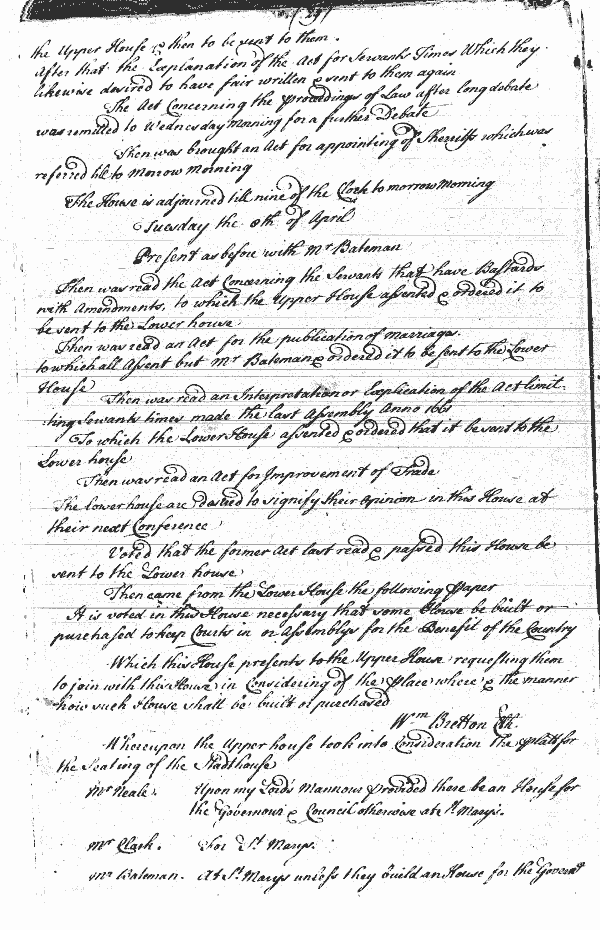 (29)
the Upper House & then to be sent to them.
After that the Explanation of the Act for Servants Times Which they
likewise desired to have fair written & sent to them again
The Act Concerning the proceedings of Law after long debate
was remitted to Wednesday Morning for a further Debate
Then was brought an Act for appointing of Sherriffs which was
referred till to Morrow Morning
The House is adjourned till nine of the Clock to morrow Morning
Tuesday the 8th of April
Present as before with Mr Bateman
Then was read the Act Concerning the Servants that have Bastards
with Amendments, to which the Upper House assented & ordered it to
be sent to the Lower house
Then was read an Act for the publication of marriages.
to which all Assent but Mr Bateman & ordered it to be sent to the Lower
House
Then was read an Interpretation or Explication of the Act limit-
ting Servants times made the last Assembly Anno 1661
To which the Lower House assented & ordered that it be sent to the
Lower house
Then was read an Act for Improvement of Trade
The lower house are desired to signify their Opinion in this House at
their next Conference
Voted that the former Act last read & passed this House be
sent to the Lower house
Then came from the Lower House the following Paper
It is voted in this House necessary that some House be built or
purchased to keep Courts in or Assemblys for the Benefit of the Country
Which this House presents to the Upper House requesting them
to join with this House in Considering of the Place where & the manner
how such House shall be built or purchased
Wm Bretton Clk.
Whereupon the Upper house took into Consideration the platt for
the Seating of the Stadthouse
Mr Neale. Upon my Lords Mannour provided there be an House for
the Governour & Council otherwise at St Marys.
Mr Clark. For St Marys.
Mr Bateman. At St Marys unless they build an House for the Govern